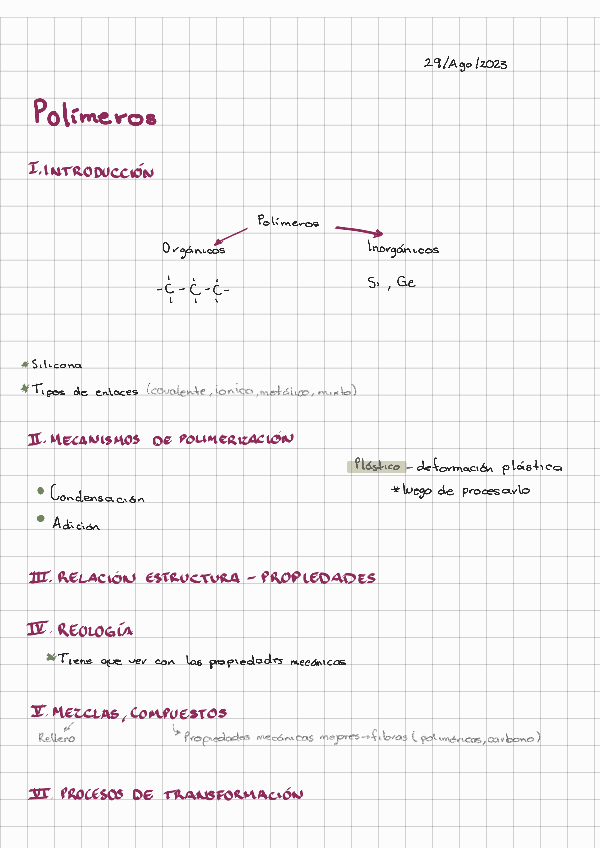 29/Ago/2023
Polímeros
I. INTRODUCCIÓN
Polímeros
Orgánicos
Inorgánicos
-C-C-C-
Si, Ge
* Silicona
* Tipos de enlaces (covalente, ionico, metálico, mixto)
II. MECANISMOS DE POLIMERIZACIÓN
Plástico - deformación plástica
* luego de procesarlo
• Condensación
• Adición
III. RELACIÓN ESTRUCTURA - PROPIEDADES
IV. REOLOGÍA
* Tiene que ver con las propiedades mecánicas
V. MEZCLAS, COMPUESTOS
Relleno
↳ Propiedades mecánicas mejores → fibras (poliméricas, carbono)
VI PROCESOS DE TRANSFORMACIÓN